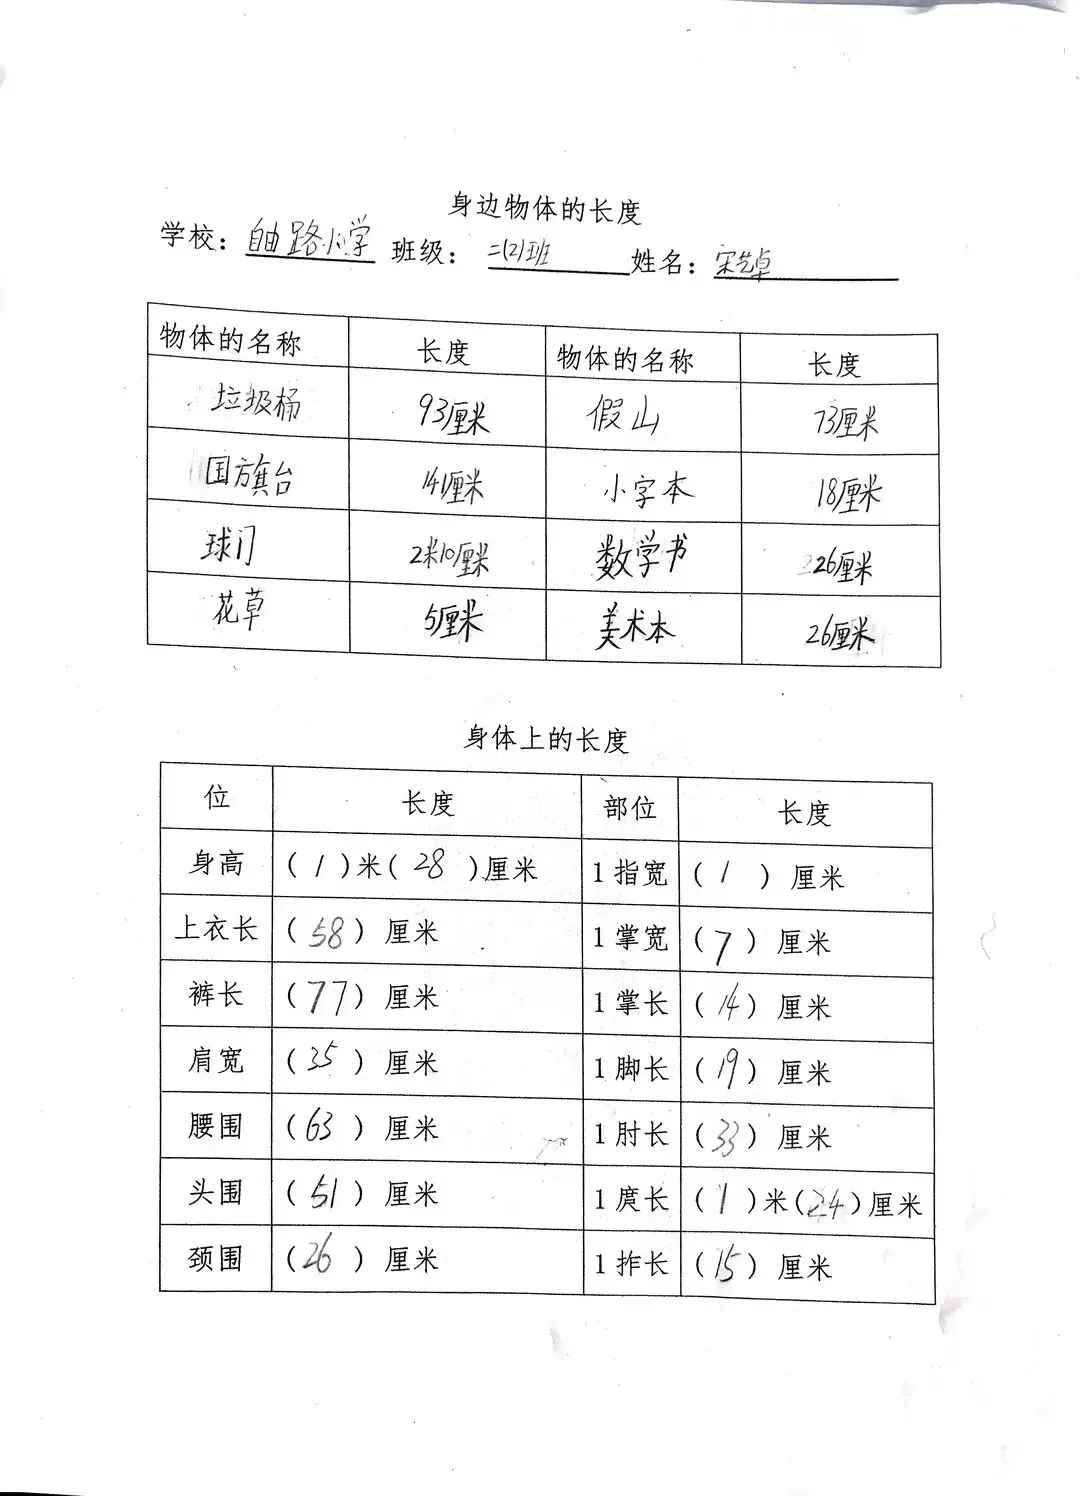 身边物体的长度
学校：自由路小学 班级：二(2)班 姓名：宋艺卓
物体的名称 长度 物体的名称 长度
垃圾桶 93厘米 假山 73厘米
国旗台 141厘米 小字本 18厘米
球门 2米10厘米 数学书 26厘米
花草 5厘米 美术本 26厘米
身体上的长度
位 长度 部位 长度
身高 (1)米(28)厘米 1指宽 (1)厘米
上衣长 (58)厘米 1掌宽 (7)厘米
裤长 (77)厘米 1掌长 (14)厘米
肩宽 (35)厘米 1脚长 (19)厘米
腰围 (63)厘米 1肘长 (33)厘米
头围 (51)厘米 1庹长 (1)米(24)厘米
颈围 (26)厘米 1拃长 (15)厘米